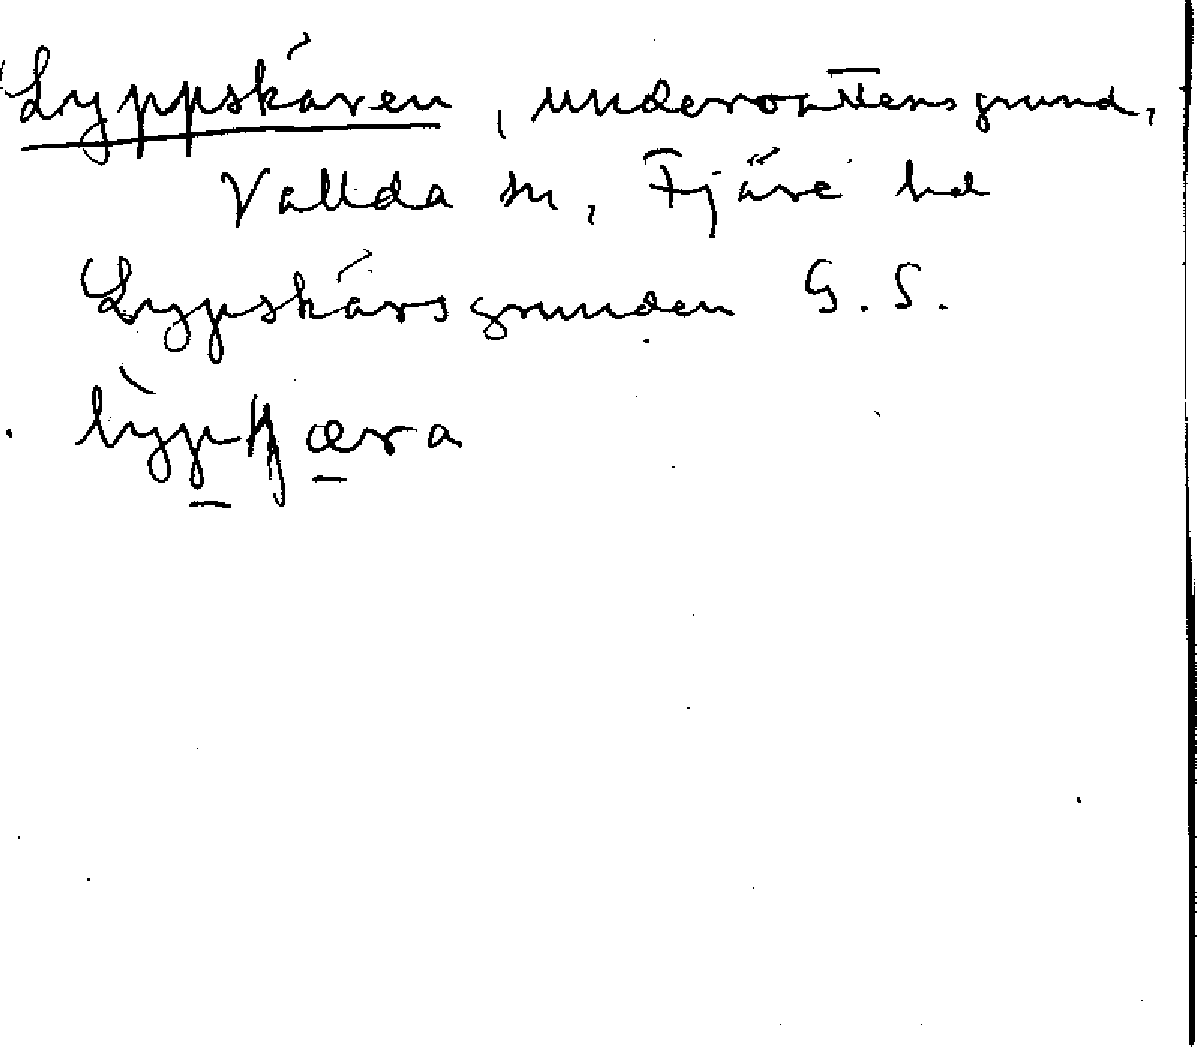 Lyppskären, undervattensgrund,
Vallda sn, Fjäre hd
Lypskärsgrunden G. S.